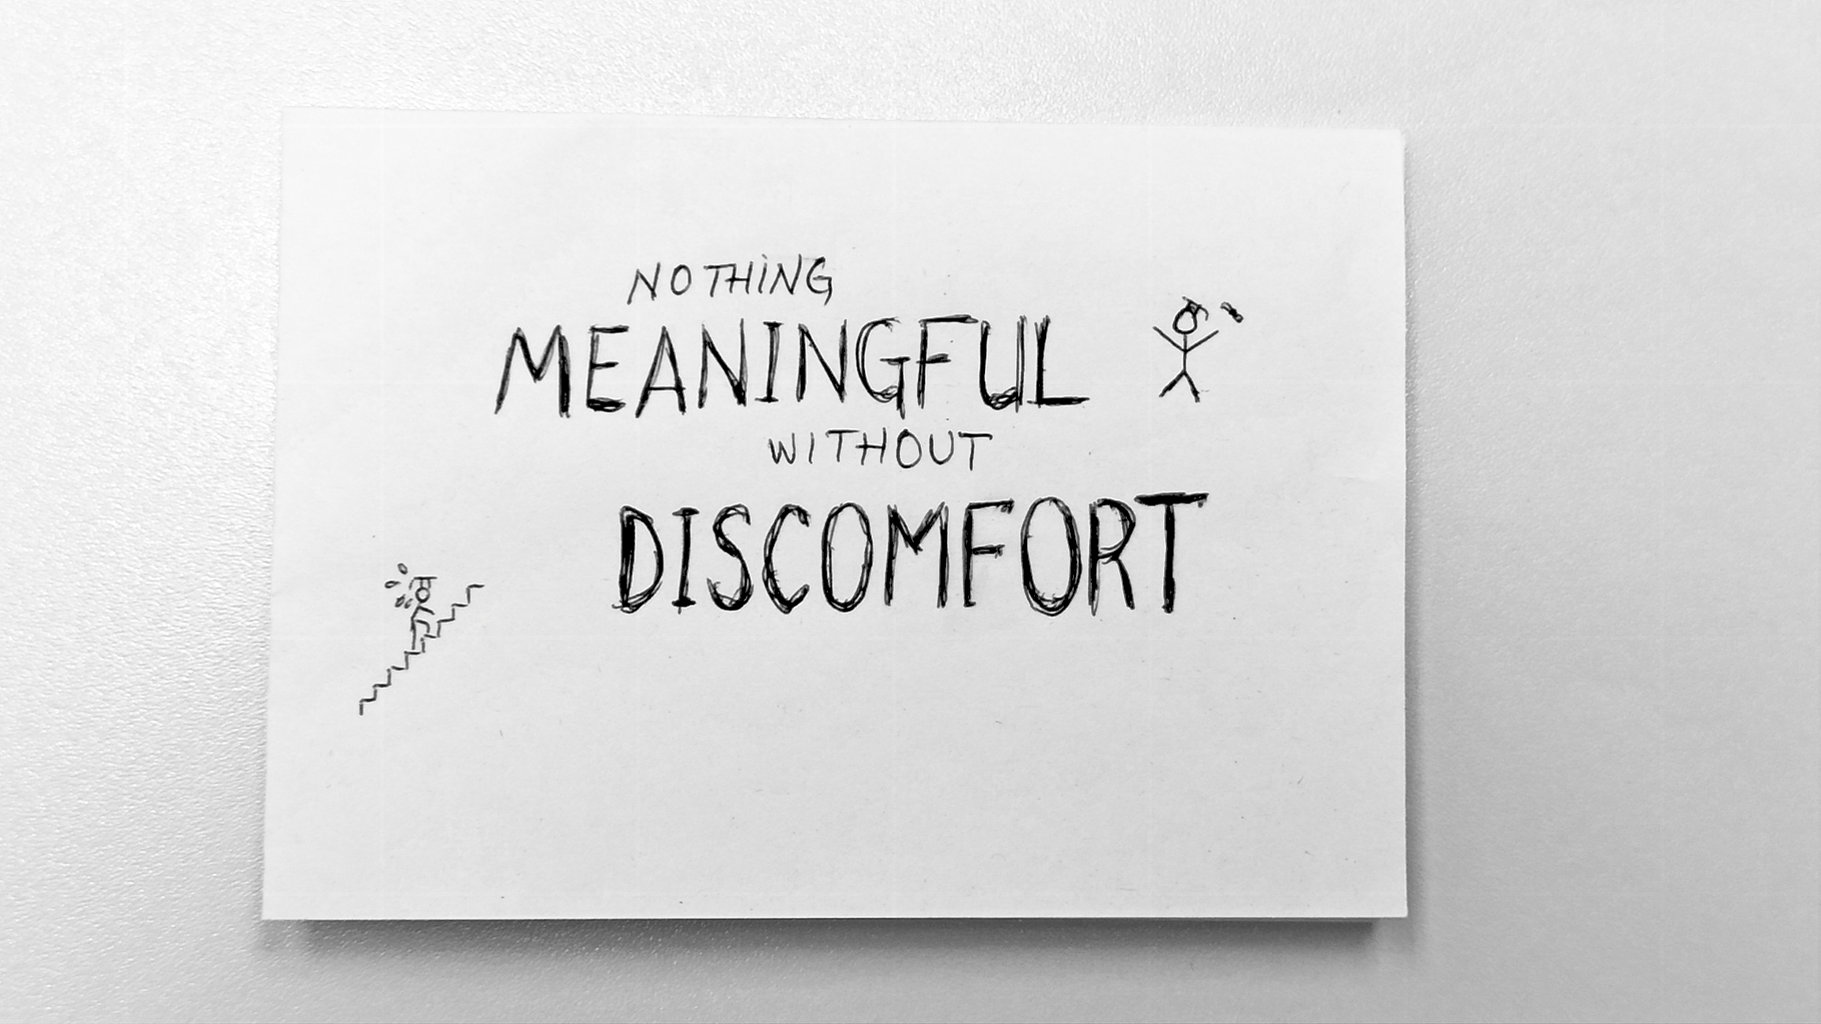 NOTHING
MEANINGFUL
WITHOUT
DISCOMFORT